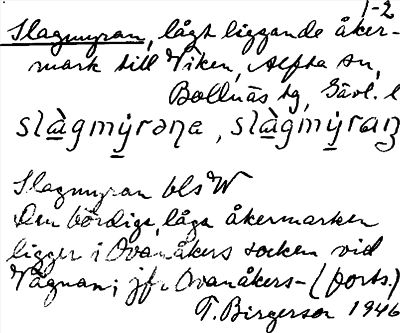 1-2
Slagmyran, lågt liggande åker-
mark till Viken, Alfta sn,
Bollnäs tg, Gävl. l
slàgmýrəna, slàgmýran
Slagmyran bls W
Den bördiga, låga åkermarken
ligger i Ovanåkers socken vid
Vågnan; jfr Ovanåkers- (forts.)
T. Birgerson 1946